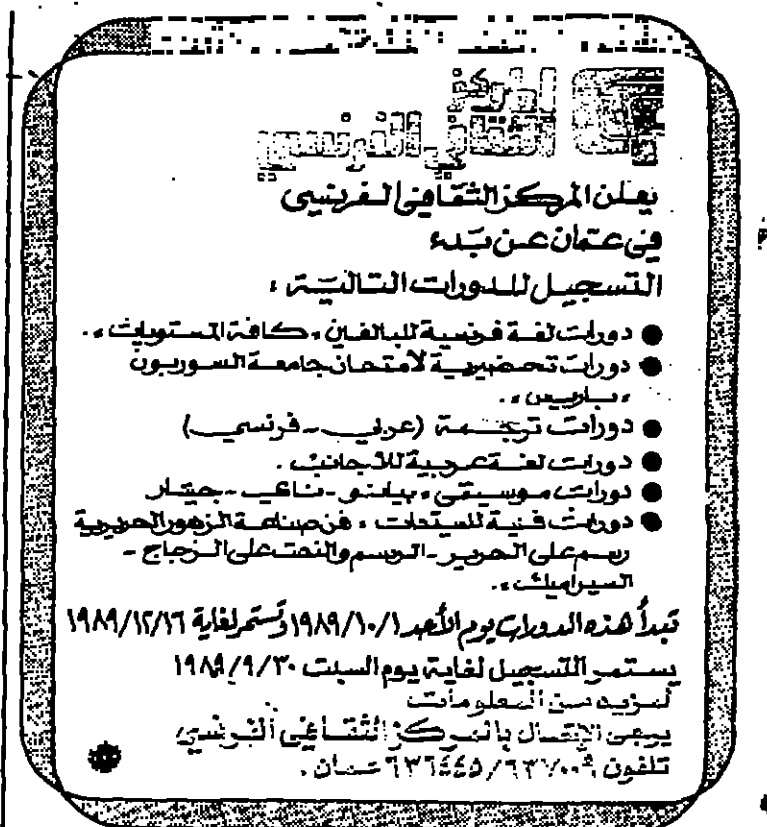 المركز
الثقافي الفرنسي
يعلن المركز الثقافي الفرنسي
في عمان عن بدء
التسجيل للدورات التالية :
● دورات لغة فرنسية للبالغين « كافة المستويات » .
● دورات تحضيرية لامتحان جامعة السوربون
« باريس » .
● دورات ترجمة (عربي - فرنسي)
● دورات لغة عربية للأجانب .
● دورات موسيقى « بيانو - ناي - جيتار
● دورات فنية للسيدات « فن صناعة الزهور الحريرية
رسم على الحرير - الرسم والنحت على الزجاج -
السيراميك » .
تبدأ هذه الدورات يوم الأحد ١٩٨٩/١٠/١ وتستمر لغاية ١٩٨٩/١٢/١٦
يستمر التسجيل لغاية يوم السبت ١٩٨٩/٩/٣٠
لمزيد من المعلومات
يرجى الإتصال بالمركز الثقافي الفرنسي
تلفون ٦٣٦٤٤٥/٦٣٧٠٠٩ عمان .